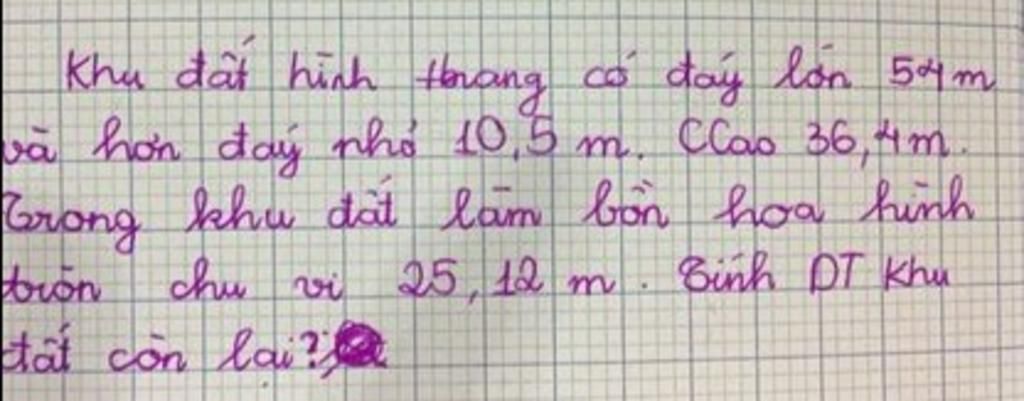 Khu đất hình thang có đáy lớn 54m
và hơn đáy nhỏ 10,5 m. CCao 36,4m.
Trong khu đất làm bồn hoa hình
tròn chu vi 25,12 m. Tính DT khu
đất còn lại?